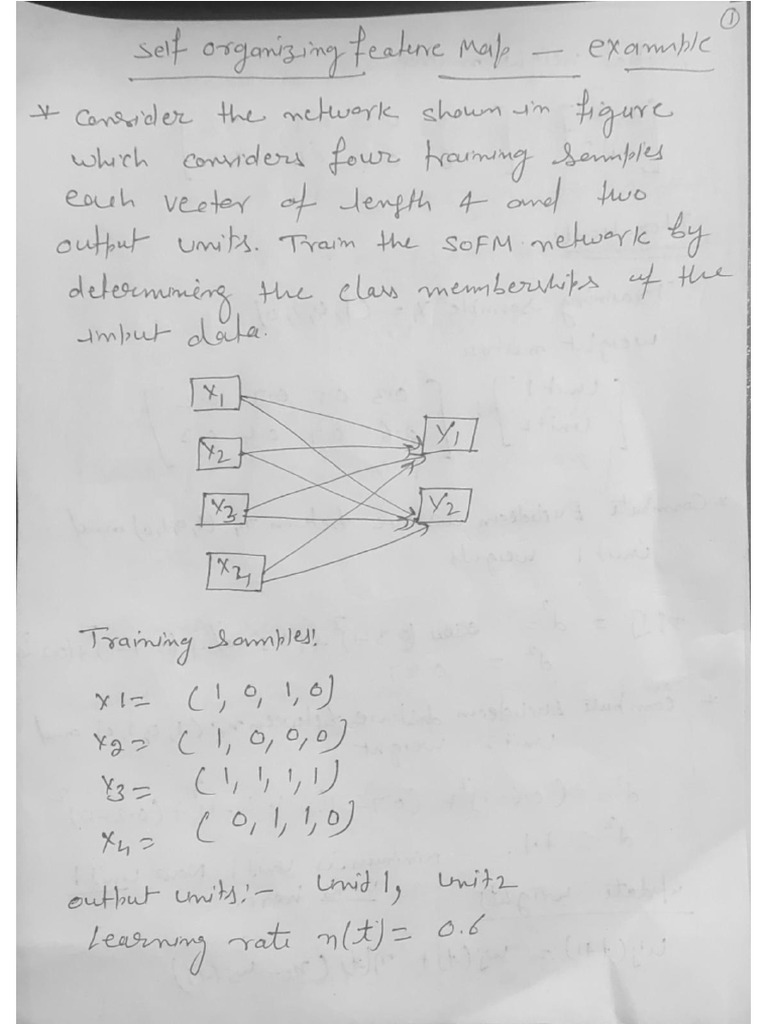 ①
Self Organizing feature Map — example
* Consider the network shown in figure
which considers four training Samples
each vector of length 4 and two
output units. Train the SOFM network by
determining the class memberships of the
input data.
X1
Y1
X2
X3
Y2
X4
Training Samples:
x1= (1, 0, 1, 0)
x2= (1, 0, 0, 0)
x3= (1, 1, 1, 1)
x4= (0, 1, 1, 0)
output units:- Unit 1, Unit 2
Learning rate η(t) = 0.6